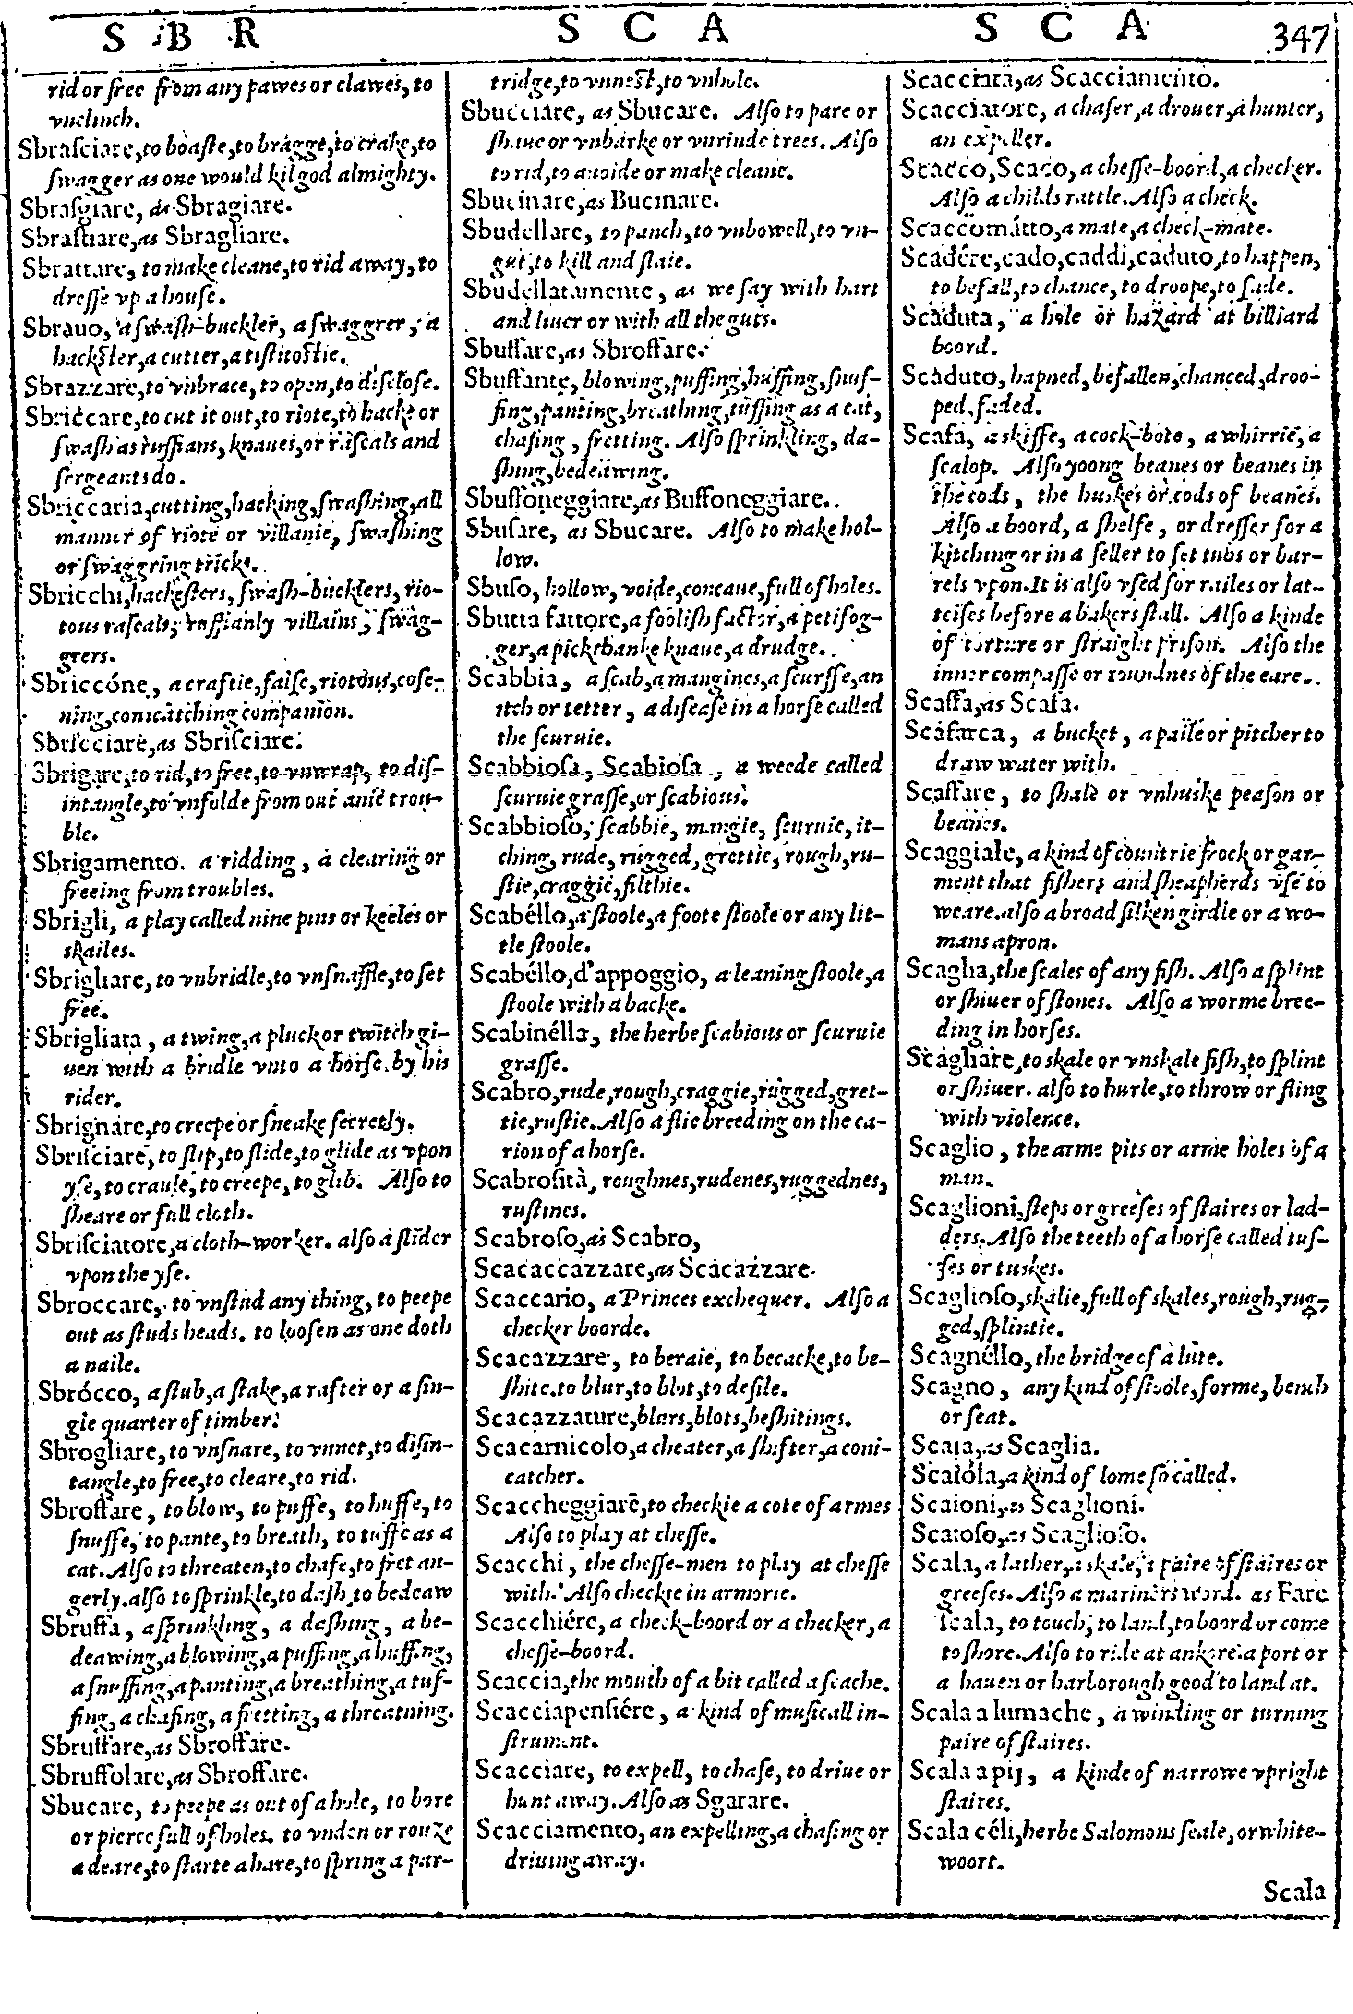 S B R
S C A
S C A
347
rid or free from any pawes or clawes, to
vnclinch.
Sbraſciare, to boaſte, to bragge, to crake, to
ſwagger as one would kil god almighty.
Sbraſgiare, as Sbragiare.
Sbraſtiare, as Sbragliare.
Sbrattare, to make cleane, to rid away, to
dreſſe vp a houſe.
Sbrauo, a ſwaſh-buckler, a ſwaggrer, a
hackſter, a cutter, a tiſtitoſtie.
Sbrazzare, to vnbrace, to open, to diſcloſe.
Sbriccare, to cut it out, to riote, to hacke or
ſwaſh as ruffians, knaues, or raſcals and
ſergeants do.
Sbriccaria, cutting, hacking, ſwaſhing, all
manner of riote or villanie, ſwaſhing
or ſwaggring tricks.
Sbricchi, hackeſters, ſwaſh-bucklers, rio-
tous raſcals, ruffianly villains, ſwag-
grers.
Sbriccóne, a craftie, falſe, riotous, coſe-
ning, conicatching companion.
Sbriſcciare, as Sbriſciare.
Sbrigare, to rid, to free, to vnwrap, to diſ-
intangle, to vnfolde from out anie trou-
ble.
Sbrigamento. a ridding, a clearing or
freeing from troubles.
Sbrigli, a play called nine pins or keeles or
skailes.
Sbrigliare, to vnbridle, to vnſnaffle, to ſet
free.
Sbrigliata, a twing, a pluck or twitch gi-
uen with a bridle vnto a horſe by his
rider.
Sbrignare, to creepe or ſneake ſecretly.
Sbriſciare, to ſlip, to ſlide, to glide as vpon
yſe, to craule, to creepe, to glib. Alſo to
ſheare or full cloth.
Sbriſciatore, a cloth-worker. alſo a ſlider
vpon the yſe.
Sbroccare, to vnſtud any thing, to peepe
out as ſtuds heads. to looſen as one doth
a naile.
Sbrócco, a ſtub, a ſtake, a rafter or a ſin-
gle quarter of timber.
Sbrogliare, to vnſnare, to vnnet, to diſin-
tangle, to free, to cleare, to rid.
Sbroffare, to blow, to puffe, to huffe, to
ſnuffe, to pante, to breath, to tuffe as a
cat. Alſo to threaten, to chafe, to fret an-
gerly. alſo to ſprinkle, to daſh, to bedeaw
Sbruffa, a ſprinkling, a daſhing, a be-
deawing, a blowing, a puffing, a huffing,
a ſnuffing, a panting, a breathing, a tuf-
fing, a chafing, a fretting, a threatning.
Sbruffare, as Sbroffare.
Sbruffolare, as Sbroffare.
Sbucare, to peepe as out of a hole, to bore
or pierce full of holes. to vnden or rouze
a deare, to ſtarte a hare, to ſpring a par-
tridge, to vnneſt, to vnhole.
Sbucciare, as Sbucare. Alſo to pare or
ſhaue or vnbarke or vnrinde trees. Alſo
to rid, to auoide or make cleane.
Sbucinare, as Bucinare.
Sbudellare, to panch, to vnbowell, to vn-
gut, to kill and ſlaie.
Sbudellatamente, as we ſay with hart
and liuer or with all the guts.
Sbuffare, as Sbroffare.
Sbuffante, blowing, puffing, huffing, ſnuf-
fing, panting, breathing, tuffing as a cat,
chafing, fretting. Alſo ſprinkling, da-
ſhing, bedeawing.
Sbuffoneggiare, as Buffoneggiare.
Sbuſare, as Sbucare. Alſo to make hol-
low.
Sbuſo, hollow, voide, concaue, full of holes.
Sbutta fattore, a fooliſh factor, a petifog-
ger, a pickthanke knaue, a drudge.
Scabbia, a ſcab, a mangines, a ſcurffe, an
itch or tetter, a diſeaſe in a horſe called
the ſcuruie.
Scabbioſa, Scabioſa, a weede called
ſcuruie graſſe, or ſcabious.
Scabbioſo, ſcabbie, mangie, ſcuruie, it-
ching, rude, rugged, grettie, rough, ru-
ſtie, craggie, filthie.
Scabéllo, a ſtoole, a foote ſtoole or any lit-
tle ſtoole.
Scabéllo, d'appoggio, a leaning ſtoole, a
ſtoole with a backe.
Scabinélla, the herbe ſcabious or ſcuruie
graſſe.
Scabro, rude, rough, craggie, rugged, gret-
tie, ruſtie. Alſo a flie breeding on the ca-
rion of a horſe.
Scabroſità, roughnes, rudenes, ruggednes,
ruſtines.
Scabroſo, as Scabro,
Scacaccazzare, as Scacazzare.
Scaccario, a Princes exchequer. Alſo a
checker boorde.
Scacazzare, to beraie, to becacke, to be-
ſhite. to blur, to blot, to defile.
Scacazzature, blurs, blots, beſhitings.
Scacarnicolo, a cheater, a ſhifter, a coni-
catcher.
Scaccheggiare, to checkie a cote of armes
Alſo to play at cheſſe.
Scacchi, the cheſſe-men to play at cheſſe
with. Alſo checkie in armorie.
Scacchiére, a check-boord or a checker, a
cheſſe-boord.
Scaccia, the mouth of a bit called a ſcache.
Scacciapenſiére, a kind of muſicall in-
ſtrument.
Scacciare, to expell, to chaſe, to driue or
hunt away. Alſo as Sgarare.
Scacciamento, an expelling, a chaſing or
driuing away.
Scacciata, as Scacciamento.
Scacciatore, a chaſer, a drouer, a hunter,
an expeller.
Scacco, Scaco, a cheſſe-boord, a checker.
Alſo a childs rattle. Alſo a check.
Scaccomátto, a mate, a check-mate.
Scadére, cado, caddi, caduto, to happen,
to befall, to chance, to droope, to fade.
Scaduta, a hole or hazard at billiard
boord.
Scaduto, hapned, befallen, chanced, droo-
ped, faded.
Scafa, a skiffe, a cock-bote, a whirrie, a
ſcalop. Alſo yoong beanes or beanes in
the cods, the huskes or cods of beanes.
Alſo a boord, a ſhelfe, or dreſſer for a
kitching or in a ſeller to ſet tubs or bar-
rels vpon. It is alſo vſed for railes or lat-
teiſes before a bakers ſtall. Alſo a kinde
of torture or ſtraight priſon. Alſo the
inner compaſſe or roundnes of the eare.
Scaffa, as Scafa.
Scafarca, a bucket, a paile or pitcher to
draw water with.
Scaffare, to ſhale or vnhuske peaſon or
beanes.
Scaggiale, a kind of countrie frock or gar-
ment that fiſhers and ſheapherds vſe to
weare. alſo a broad ſilken girdle or a wo-
mans apron.
Scaglia, the ſcales of any fiſh. Alſo a ſplint
or ſhiuer of ſtones. Alſo a worme bree-
ding in horſes.
Scagliare, to skale or vnskale fiſh, to ſplint
or ſhiuer. alſo to hurle, to throw or fling
with violence.
Scaglio, the arme pits or arme holes of a
man.
Scaglioni, ſteps or greeſes of ſtaires or lad-
ders. Alſo the teeth of a horſe called tuſ-
ſes or tuskes.
Scaglioſo, skalie, full of skales, rough, rug-
ged, ſplintie.
Scagnéllo, the bridge of a lute.
Scagno, any kind of ſtoole, forme, bench
or ſeat.
Scaia, as Scaglia.
Scaióla, a kind of lome ſo called.
Scaioni, as Scaglioni.
Scaioſo, as Scaglioſo.
Scala, a lather, a skale, a paire of ſtaires or
greeſes. Alſo a mariners word. as Fare
ſcala, to touch, to land, to boord or come
to ſhore. Alſo to ride at ankere. a port or
a hauen or harborough good to land at.
Scala a lumache, a winding or turning
paire of ſtaires.
Scala a pij, a kinde of narrowe vpright
ſtaires.
Scala céli, herbe Salomons ſeale, or white-
woort.
Scala